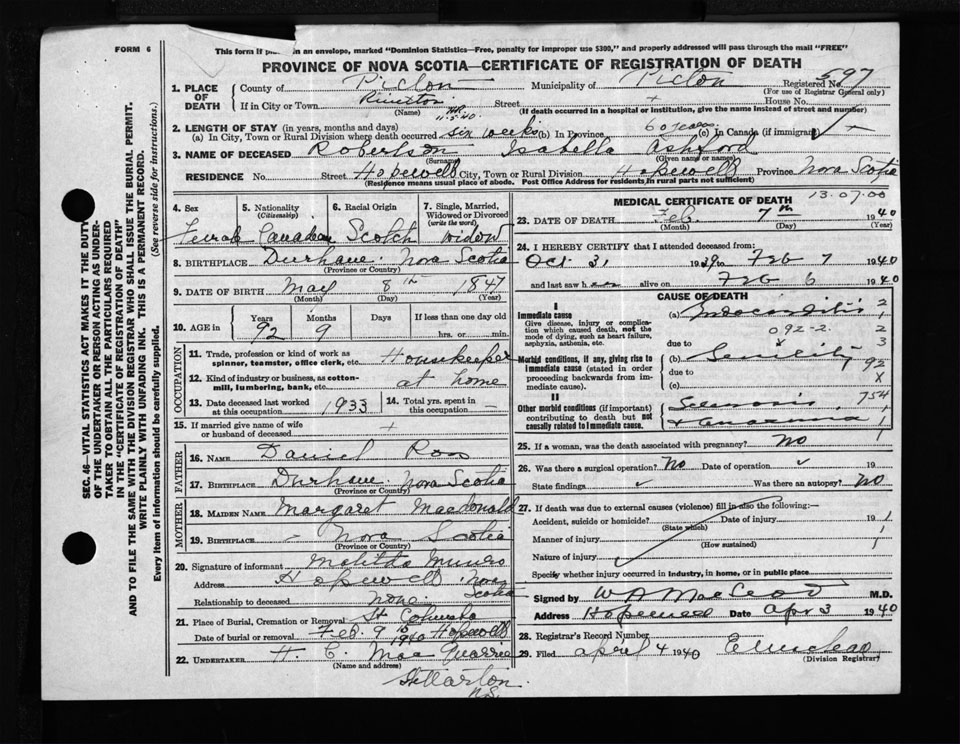 FORM 6
This form if placed in an envelope, marked "Dominion Statistics—Free, penalty for improper use $300," and properly addressed will pass through the mail "FREE"
PROVINCE OF NOVA SCOTIA—CERTIFICATE OF REGISTRATION OF DEATH
SEC. 46—VITAL STATISTICS ACT MAKES IT THE DUTY
OF THE UNDERTAKER OR PERSON ACTING AS UNDER-
TAKER TO OBTAIN ALL THE PARTICULARS REQUIRED
IN THE "CERTIFICATE OF REGISTRATION OF DEATH"
AND TO FILE THE SAME WITH THE DIVISION REGISTRAR WHO SHALL ISSUE THE BURIAL PERMIT.
WRITE PLAINLY WITH UNFADING INK. THIS IS A PERMANENT RECORD.
Every item of Information should be carefully supplied. (See reverse side for instructions.)
1. PLACE OF DEATH
County of Pictou Municipality of Pictou Registered No. 597
(For use of Registrar General only)
If in City or Town Street House No.
(Name) (If death occurred in a hospital or institution, give the name instead of street and number)
2. LENGTH OF STAY (in years, months and days)
(a) In City, Town or Rural Division where death occurred six weeks (b) In Province 60 years (c) In Canada (if immigrant)
3. NAME OF DECEASED Robertson Isabella Ashford
(Surname) (Given name or names)
RESIDENCE No. Street Hopewell City, Town or Rural Division Hopewell Province Nova Scotia
(Residence means usual place of abode. Post Office Address for residents in rural parts not sufficient)
4. Sex 5. Nationality (Citizenship) 6. Racial Origin 7. Single, Married, Widowed or Divorced (write the word)
Female Canadian Scotch widow
8. BIRTHPLACE Durham Nova Scotia
(Province or Country)
9. DATE OF BIRTH May 8th 1847
(Month) (Day) (Year)
10. AGE in Years Months Days If less than one day
92 9 hrs. or min.
OCCUPATION
11. Trade, profession or kind of work as spinner, teamster, office clerk, etc. Housekeeper
12. Kind of industry or business, as cotton-mill, lumbering, bank, etc. at home
13. Date deceased last worked at this occupation 1933 14. Total yrs. spent in this occupation —
15. If married give name of wife or husband of deceased +
FATHER
16. NAME Daniel Ross
17. BIRTHPLACE Durham Nova Scotia
(Province or Country)
MOTHER
18. MAIDEN NAME Margaret Macdonald
19. BIRTHPLACE — Nova Scotia
(Province or Country)
20. Signature of informant Munro
Address Hopewell Nova Scotia
Relationship to deceased none
21. Place of Burial, Cremation or Removal Hopewell
Date of burial or removal Feb. 9th 1940
22. UNDERTAKER H. C. Mac Quarrie
(Name and address)
Stellarton
N.S.
MEDICAL CERTIFICATE OF DEATH
13-07-00
23. DATE OF DEATH Feb. 7th 1940
(Month) (Day) (Year)
24. I HEREBY CERTIFY that I attended deceased from:
Oct 31 1939 to Feb 7 1940
and last saw h alive on Feb 6 1940
CAUSE OF DEATH
I
Immediate cause
Give disease, injury or complication which caused death, not the mode of dying, such as heart failure, asphyxia, asthenia, etc.
(a) Endocarditis
092-2.
due to
Morbid conditions, if any, giving rise to immediate cause (stated in order proceeding backwards from immediate cause).
(b) Senility 92
(c)
II
Other morbid conditions (if important) contributing to death but not causally related to immediate cause.
754
25. If a woman, was the death associated with pregnancy? No
26. Was there a surgical operation? No Date of operation 19
State findings Was there an autopsy? No
27. If death was due to external causes (violence) fill in also the following:—
Accident, suicide or homicide? Date of injury 19
(State which)
Manner of injury
(How sustained)
Nature of injury
Specify whether injury occurred in industry, in home, or in public place
Signed by W A MacLeod M.D.
Address Hopewell Date Apr 3 1940
28. Registrar's Record Number
29. Filed April 4 1940
(Division Registrar)